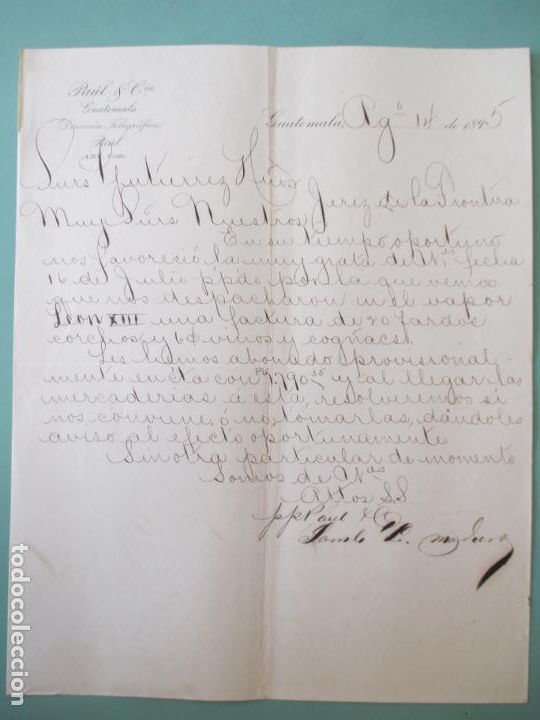 Paúl & Cía
Guatemala
Dirección Telegráfica:
Paúl
Guatemala, Ago 14 de 1895
Sres Gutierrez Hnos
Jerez de la Frontera
Muy Sres Nuestros,
En su tiempo oportuno
nos favoreció la muy grata de Vds fecha
16 de Julio ppdo por la que vemos
que nos despacharon in el vapor
Leon XIII una factura de 20 fardos
corchos, y 6 vinos y cognacs.
Les hemos abonado provisional-
mente en cta con 1,790 y al llegar las
mercaderias a esta, resolveremos si
nos conviene, ó no, tomarlas, dándoles
aviso al efecto oportunamente
Sin otra particular de momento
Somos de Vds
Attos S.S
pp Paúl & Ca
todocoleccion